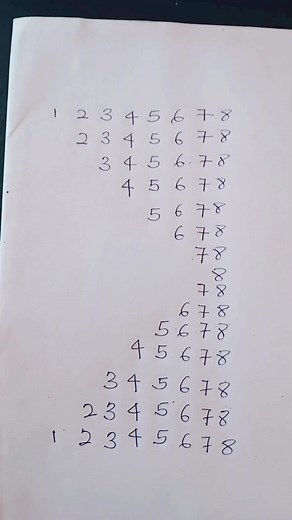 1 2 3 4 5 6 7 8
2 3 4 5 6 7 8
3 4 5 6 7 8
4 5 6 7 8
5 6 7 8
6 7 8
7 8
8
7 8
6 7 8
5 6 7 8
4 5 6 7 8
3 4 5 6 7 8
2 3 4 5 6 7 8
1 2 3 4 5 6 7 8